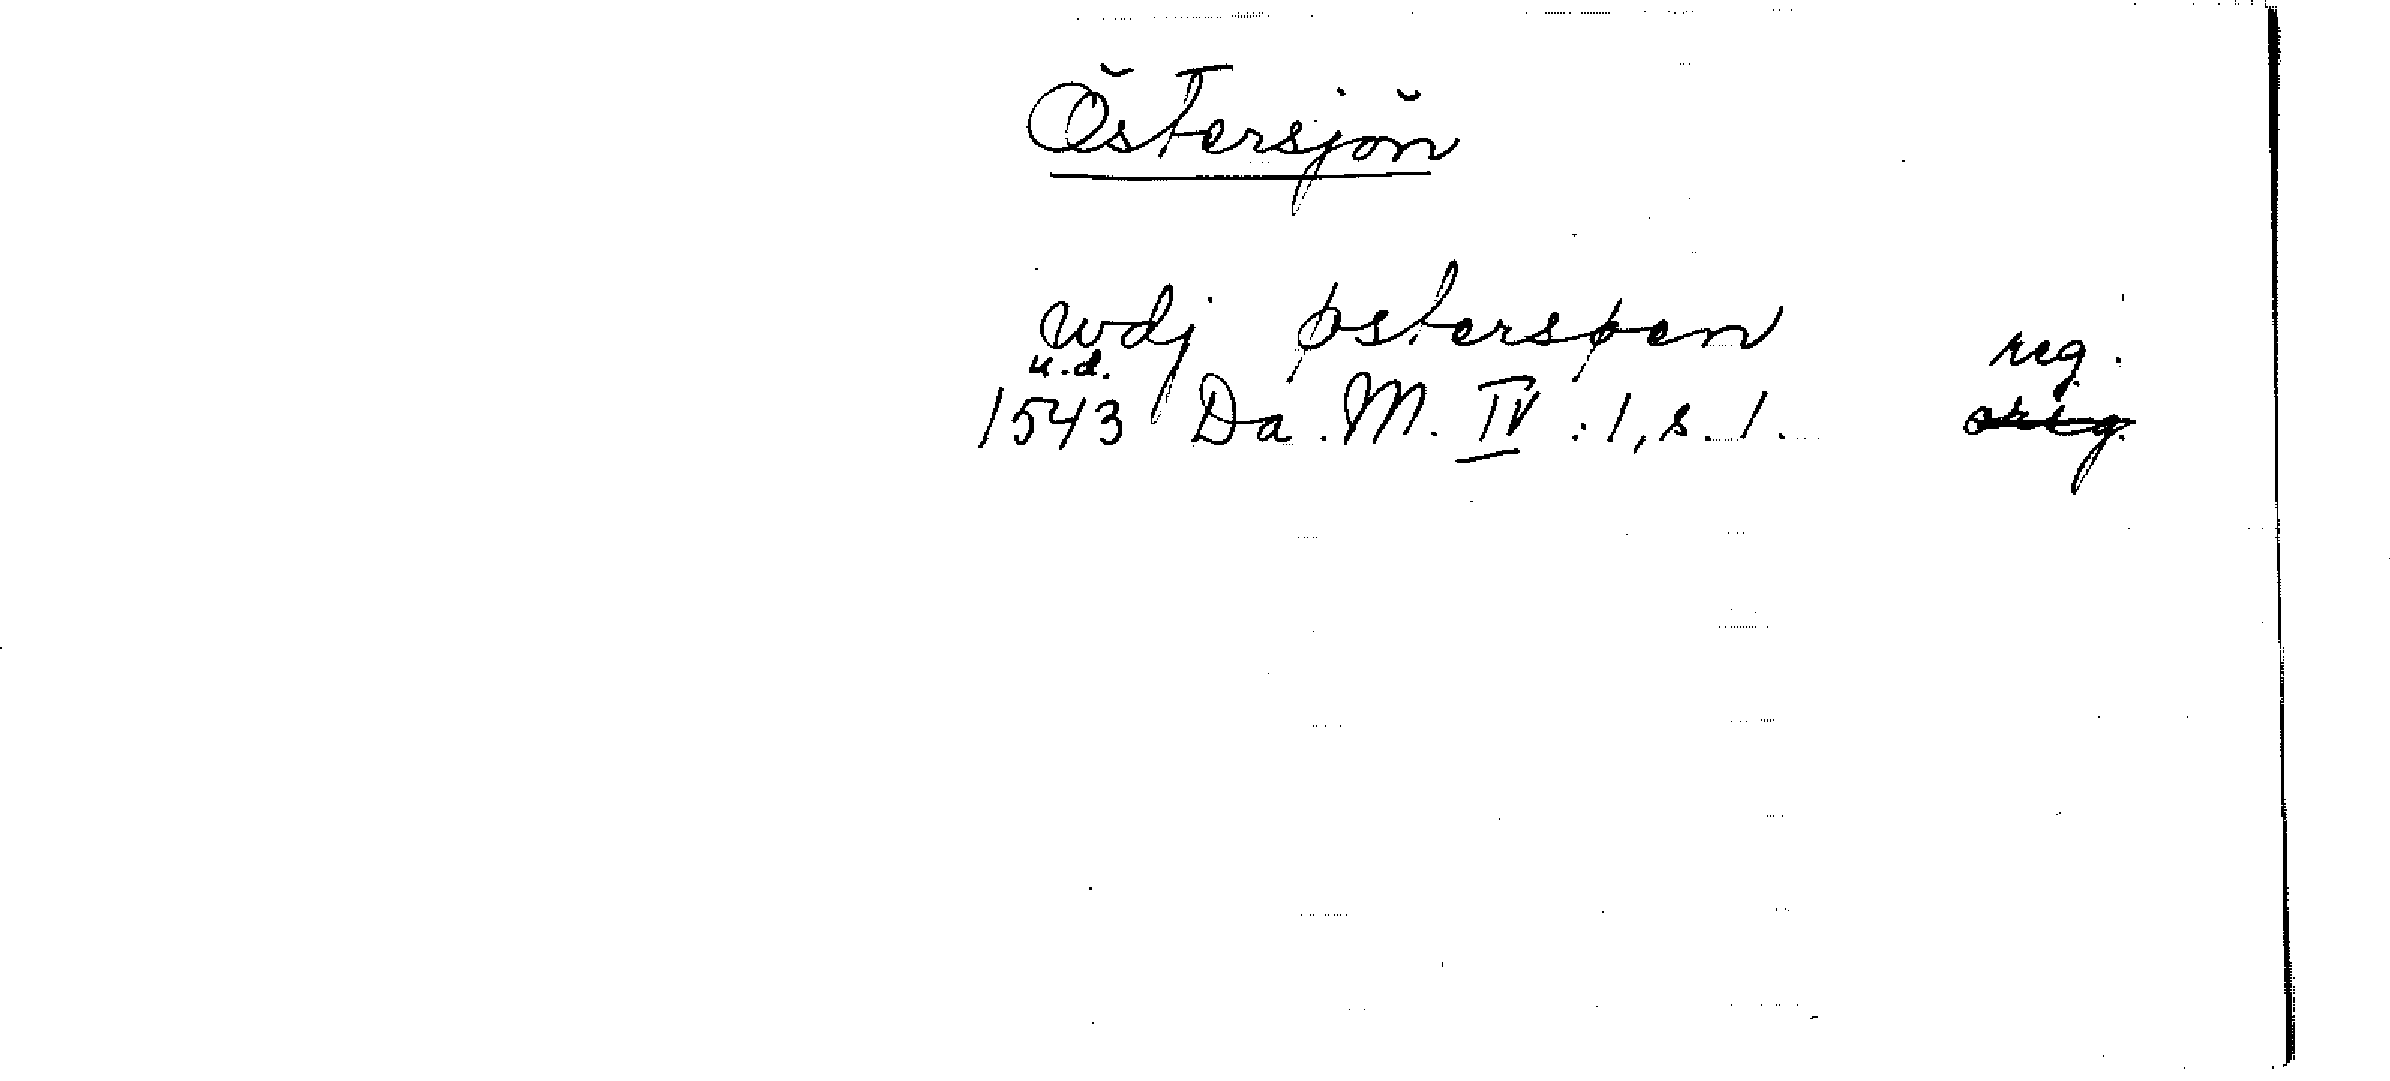 Östersjön
wdj østersøen reg.
u.d.
1543 Da. M. IV : 1, s. 1. orig.